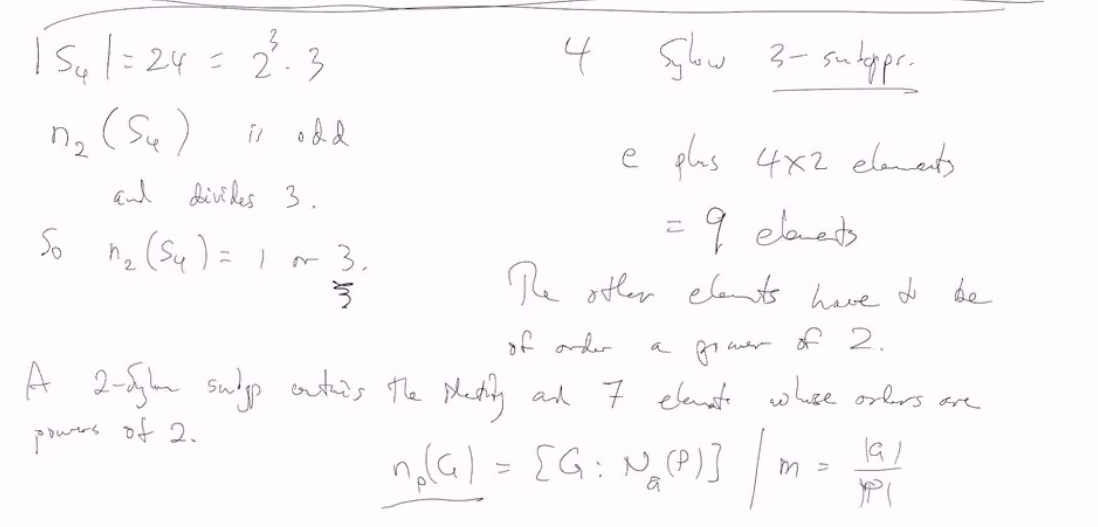 |S₄| = 24 = 2³ · 3
n₂(S₄) is odd
and divides 3.
So n₂(S₄) = 1 or 3.
3
4 Sylow 3-subgps.
e plus 4×2 elements
= 9 elements
The other elements have to be
of order a power of 2.
A 2-Sylow subgp contains the identity and 7 elements whose orders are
powers of 2.
nₚ(G) = [G : N_G(P)] | m = |G| / |P|